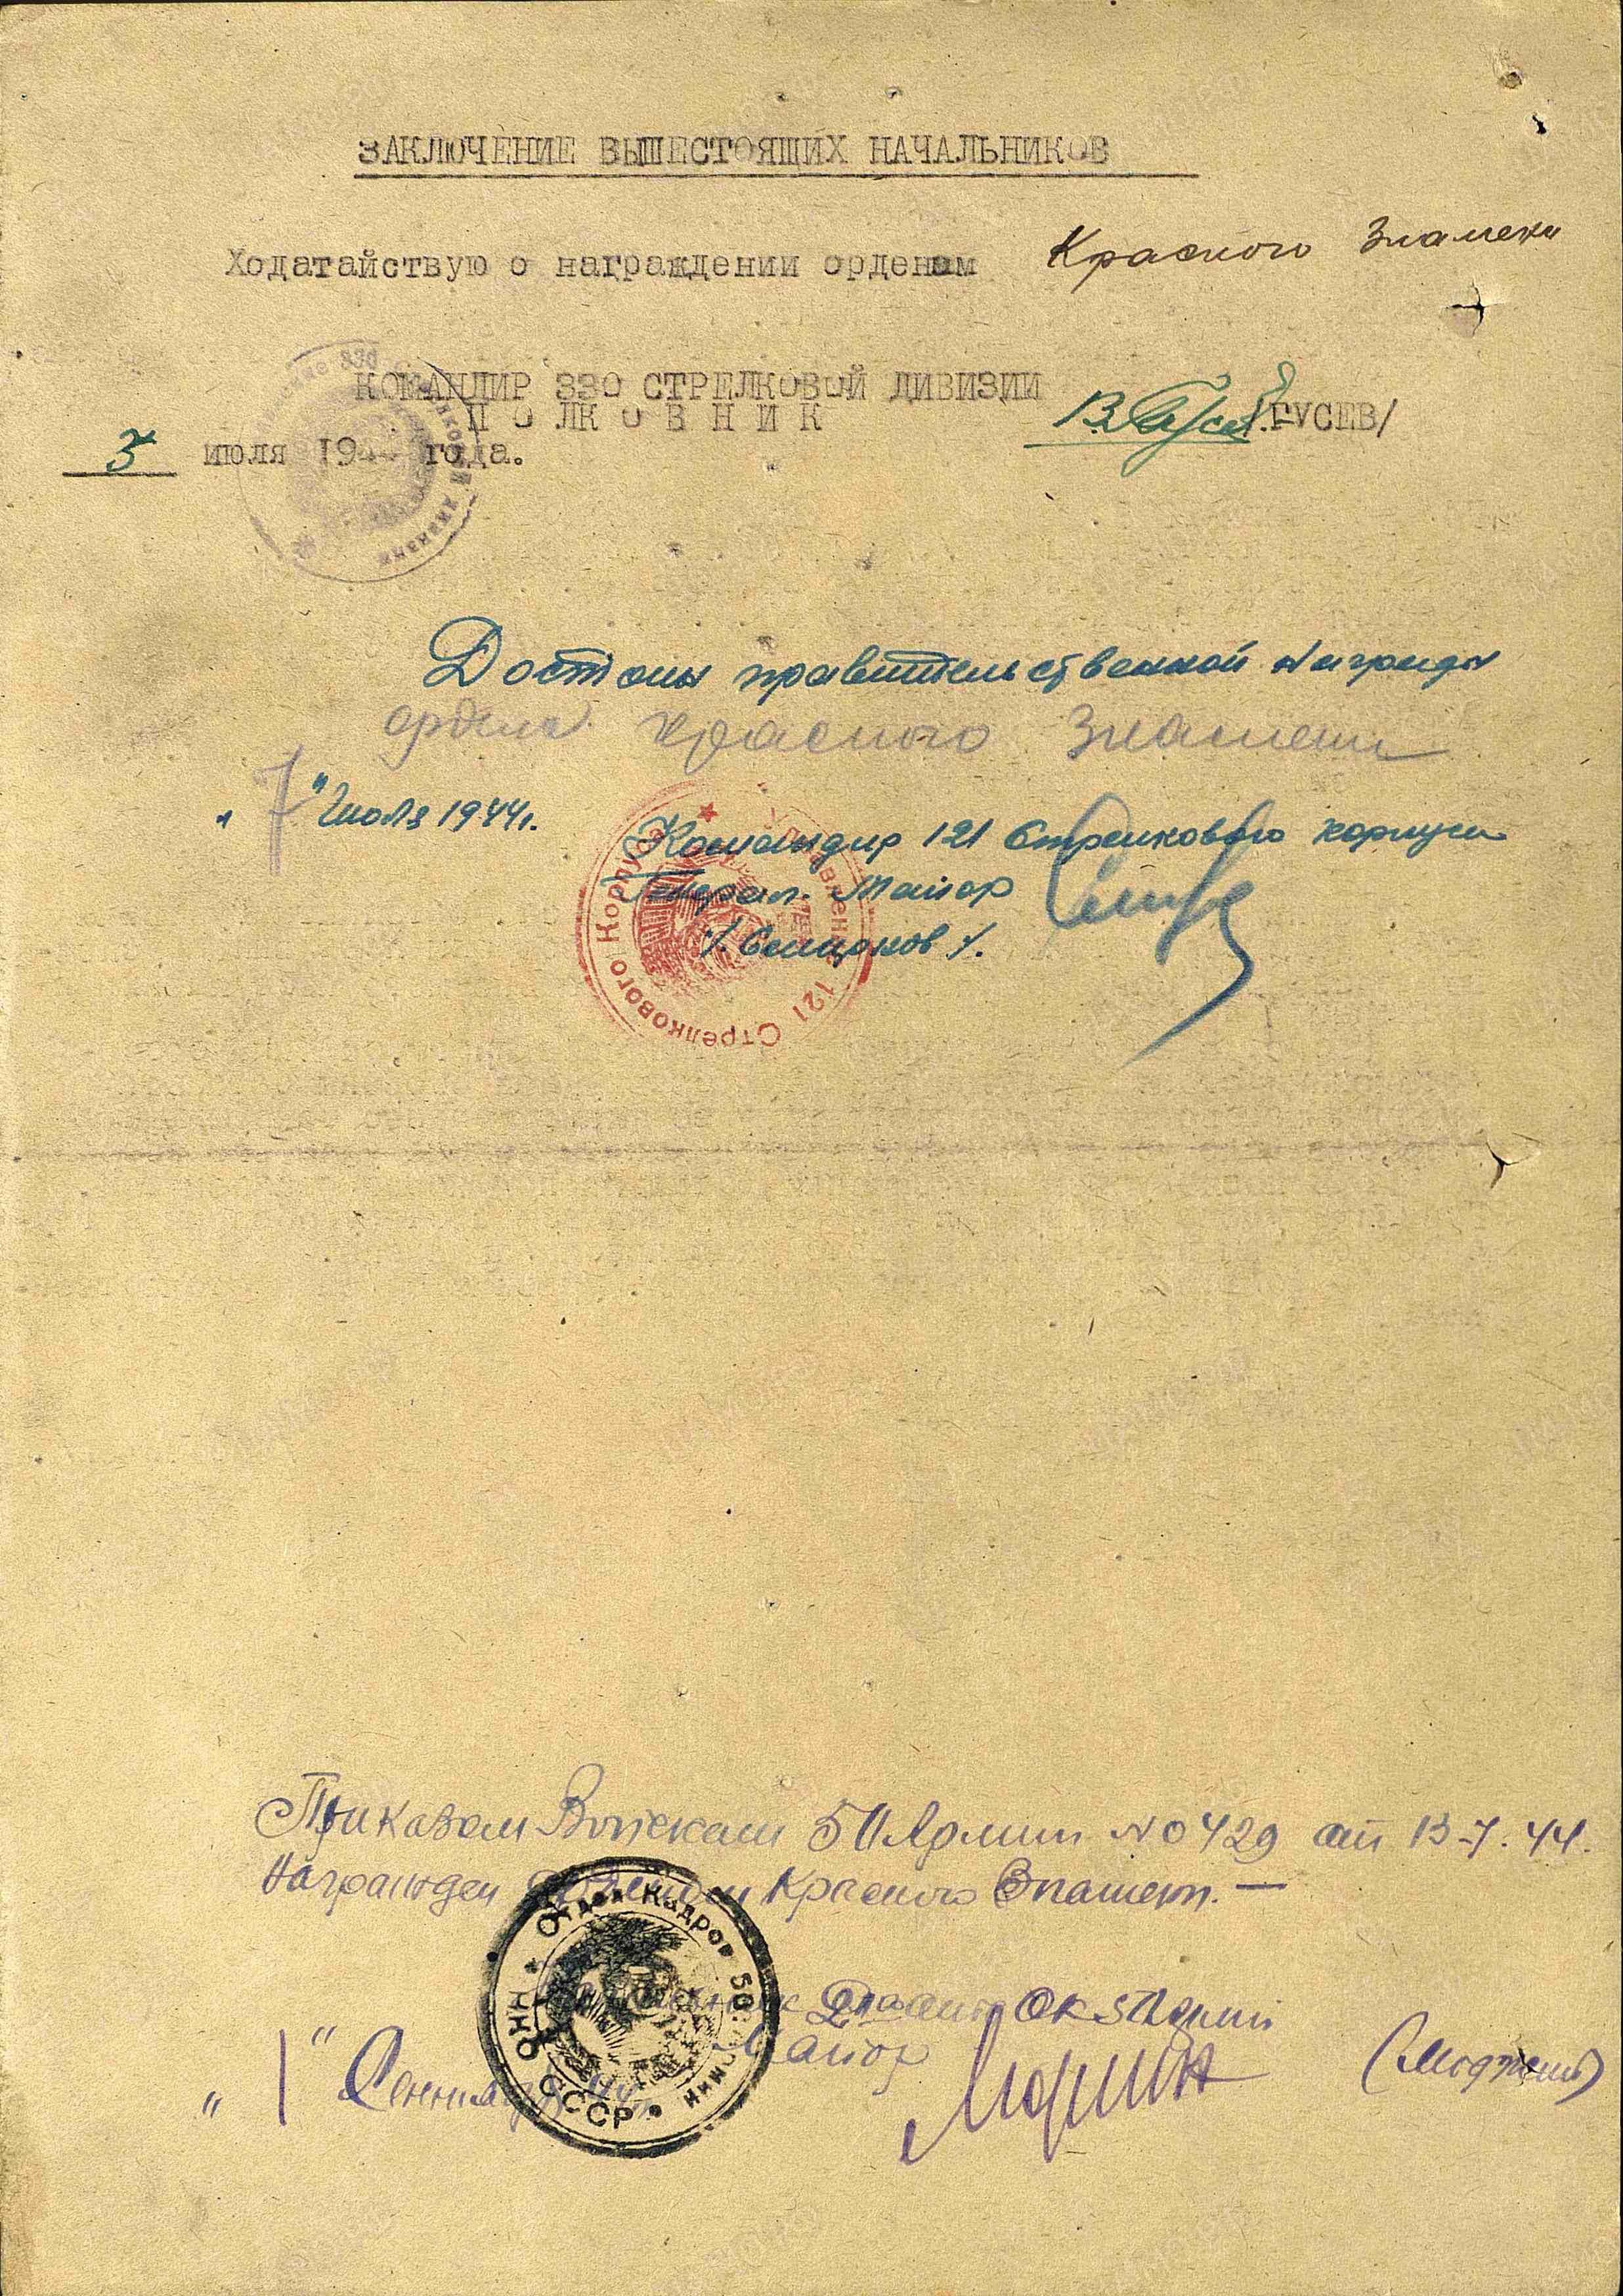 ЗАКЛЮЧЕНИЕ ВЫШЕСТОЯЩИХ НАЧАЛЬНИКОВ
Ходатайствую о награждении орденом Красного Знамени
КОМАНДИР 330 СТРЕЛКОВОЙ ДИВИЗИИ
ПОЛКОВНИК В.Гусев /ГУСЕВ/
3 июля 1944 года.
Достоин правительственной награды
ордена Красного Знамени
"7" Июля 1944г.
Командир 121 Стрелкового корпуса
Генерал-Майор
/.Смирнов./.
Управление 121 Стрелкового Корпуса
Приказом Войскам 50 Армии №0429 от 13.7.44.
Награжден Орденом Красного Знамени. —
Отдел Кадров 50 Армии
НКО СССР
ОК 50 Армии
Майор
"1" Сентября 44